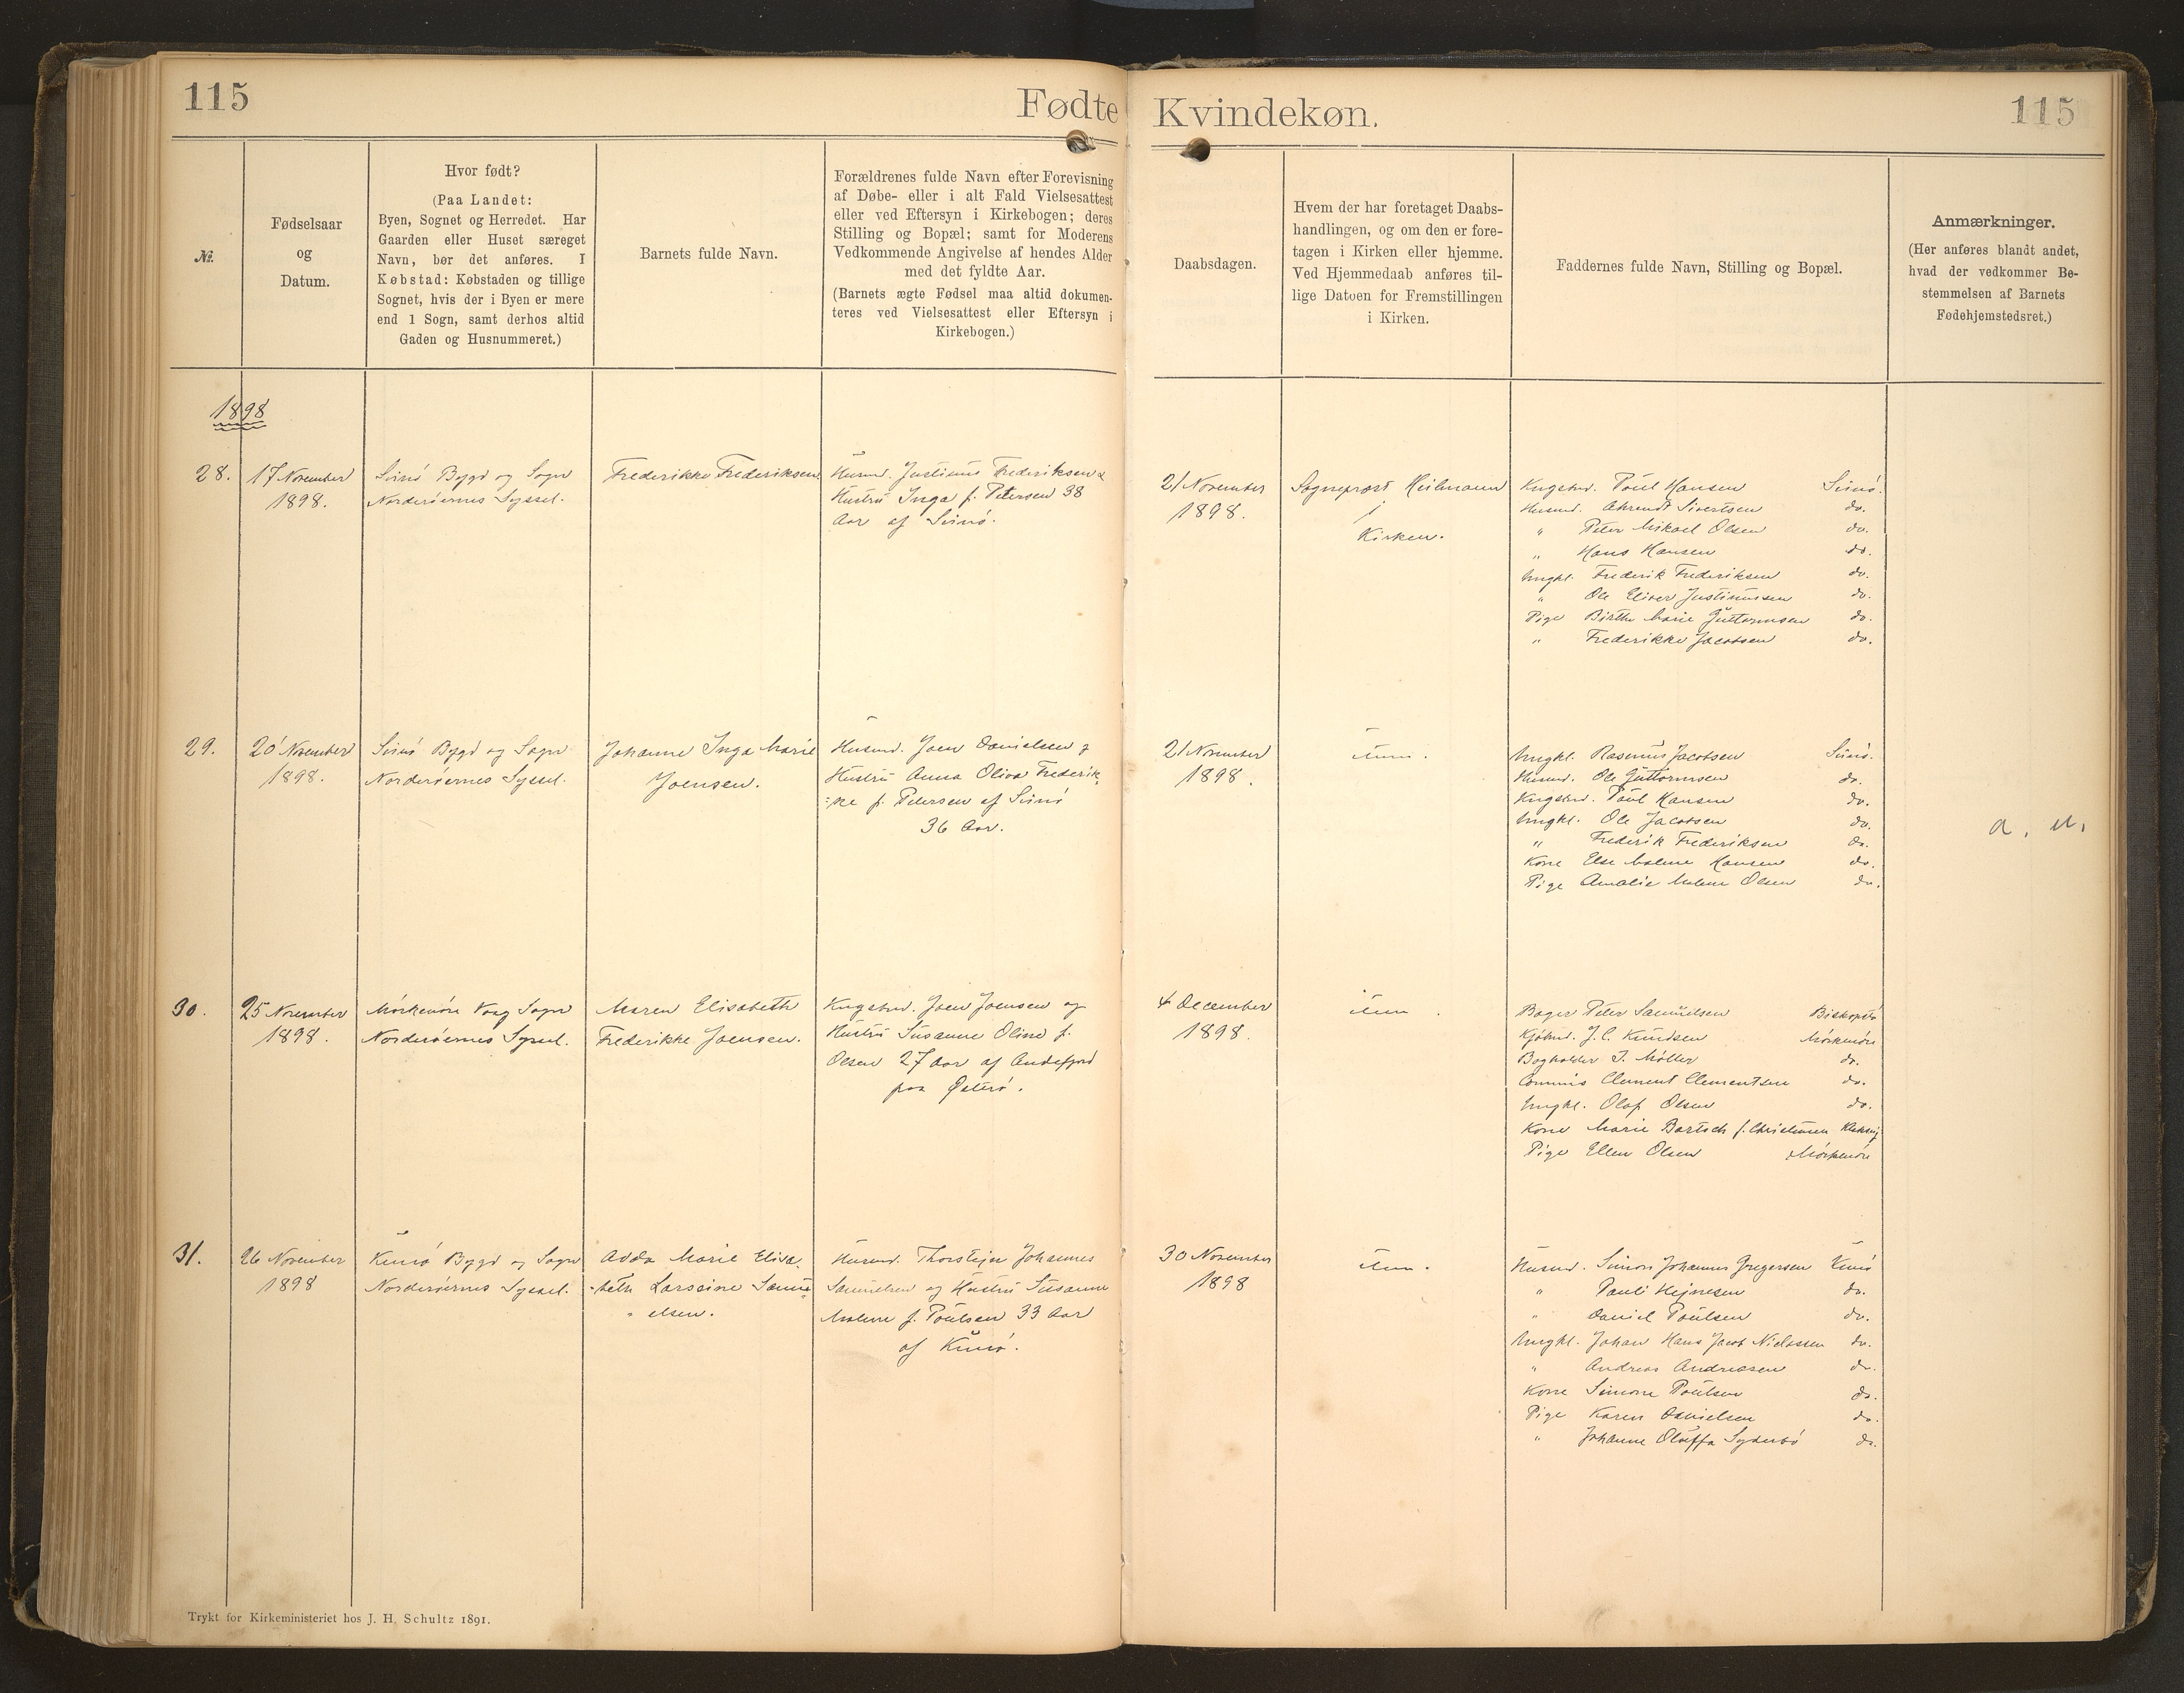 115
Fødte
Kvindekøn.
115
№.
Fødselsaar
og
Datum.
Hvor født?
(Paa Landet:
Byen, Sognet og Herredet. Har
Gaarden eller Huset særeget
Navn, bør det anføres. I
Købstad: Købstaden og tillige
Sognet, hvis der i Byen er mere
end 1 Sogn, samt derhos altid
Gaden og Husnummeret.)
Barnets fulde Navn.
Forældrenes fulde Navn efter Forevisning
af Døbe- eller i alt Fald Vielsesattest
eller ved Eftersyn i Kirkebogen; deres
Stilling og Bopæl; samt for Moderens
Vedkommende Angivelse af hendes Alder
med det fyldte Aar.
(Barnets ægte Fødsel maa altid dokumen-
teres ved Vielsesattest eller Eftersyn i
Kirkebogen.)
Daabsdagen.
Hvem der har foretaget Daabs-
handlingen, og om den er fore-
tagen i Kirken eller hjemme.
Ved Hjemmedaab anføres til-
lige Datoen for Fremstillingen
i Kirken.
Faddernes fulde Navn, Stilling og Bopæl.
Anmærkninger.
(Her anføres blandt andet,
hvad der vedkommer Be-
stemmelsen af Barnets
Fødehjemstedsret.)
1898
28.
17 November
1898.
Svinö Bygd og Sogn
Norderöernes Syssel.
Frederikke Frederiksen
Husmd. Justinus Frederiksen &
Hustru Inga f. Petersen 38
Aar af Svinö.
21 November
1898.
Sognepræst Heilmann
i
Kirken.
Kngsbnd. Poul Hansen Svinö.
Husmd. Ahrendt Sivertsen do.
" Peter Mikael Olsen do.
" Hans Hansen do.
Ungkl. Frederik Frederiksen do.
" Ole Eliver Justinussen do.
Pige Birthe Marie Guttormsen do.
" Frederikke Jacobsen do.
29.
20 November
1898.
Svinö Bygd og Sogn
Norderöernes Syssel.
Johanne Inga Marie
Joensen.
Husmd. Joen Danielsen &
Hustru Anna Oliva Frederik-
ke f. Petersen af Svinö
36 Aar.
21 November
1898.
item.
Ungkl. Rasmus Jacobsen Svinö.
Husmd. Ole Guttormsen do.
Kngsbnd. Poul Hansen do.
Ungkl. Ole Jacobsen do.
" Frederik Frederiksen do.
Kone Else Malene Hansen do.
Pige Amalie Malene Olsen do.
30.
25 November
1898.
Mörkenöre Vaag Sogn
Norderöernes Syssel.
Maren Elisabeth
Frederikke Joensen.
Kngsbnd. Joen Joensen og
Hustru Susanne Oline f.
Olsen 27 Aar af Andefjord
paa Østerö.
4 December
1898.
item.
Bager Peter Samuelsen Biskopstö
Kjöbmd. J. C. Knudsen Mörkenöre
Bogholder J. Möller do.
Commis Clement Clementsen do.
Ungkl. Olaf Olsen do.
Kone Marie Bartsch f. Christiansen Klaksvig
Pige Ellen Olsen Mörkenöre
31.
26 November
1898
Kunö Bygd og Sogn
Norderöernes Syssel.
Adda Marie Elisa-
beth Larsine Samu-
elsen.
Husmd. Thorstejn Johannes
Samuelsen og Hustru Susanne
Malene f. Poulsen 33 Aar
af Kunö.
30 November
1898
item.
Husmd. Simon Johannes Gregersen Kunö
" Pauli Hejnesen do.
" Daniel Poulsen do.
Ungkl. Johan Hans Jacob Niclassen do.
" Andreas Andreasen do.
Kone Simone Poulsen do.
Pige Karen Danielsen do.
" Johanne Oluffa Syderbö do.
Trykt for Kirkeministeriet hos J. H. Schultz 1891.